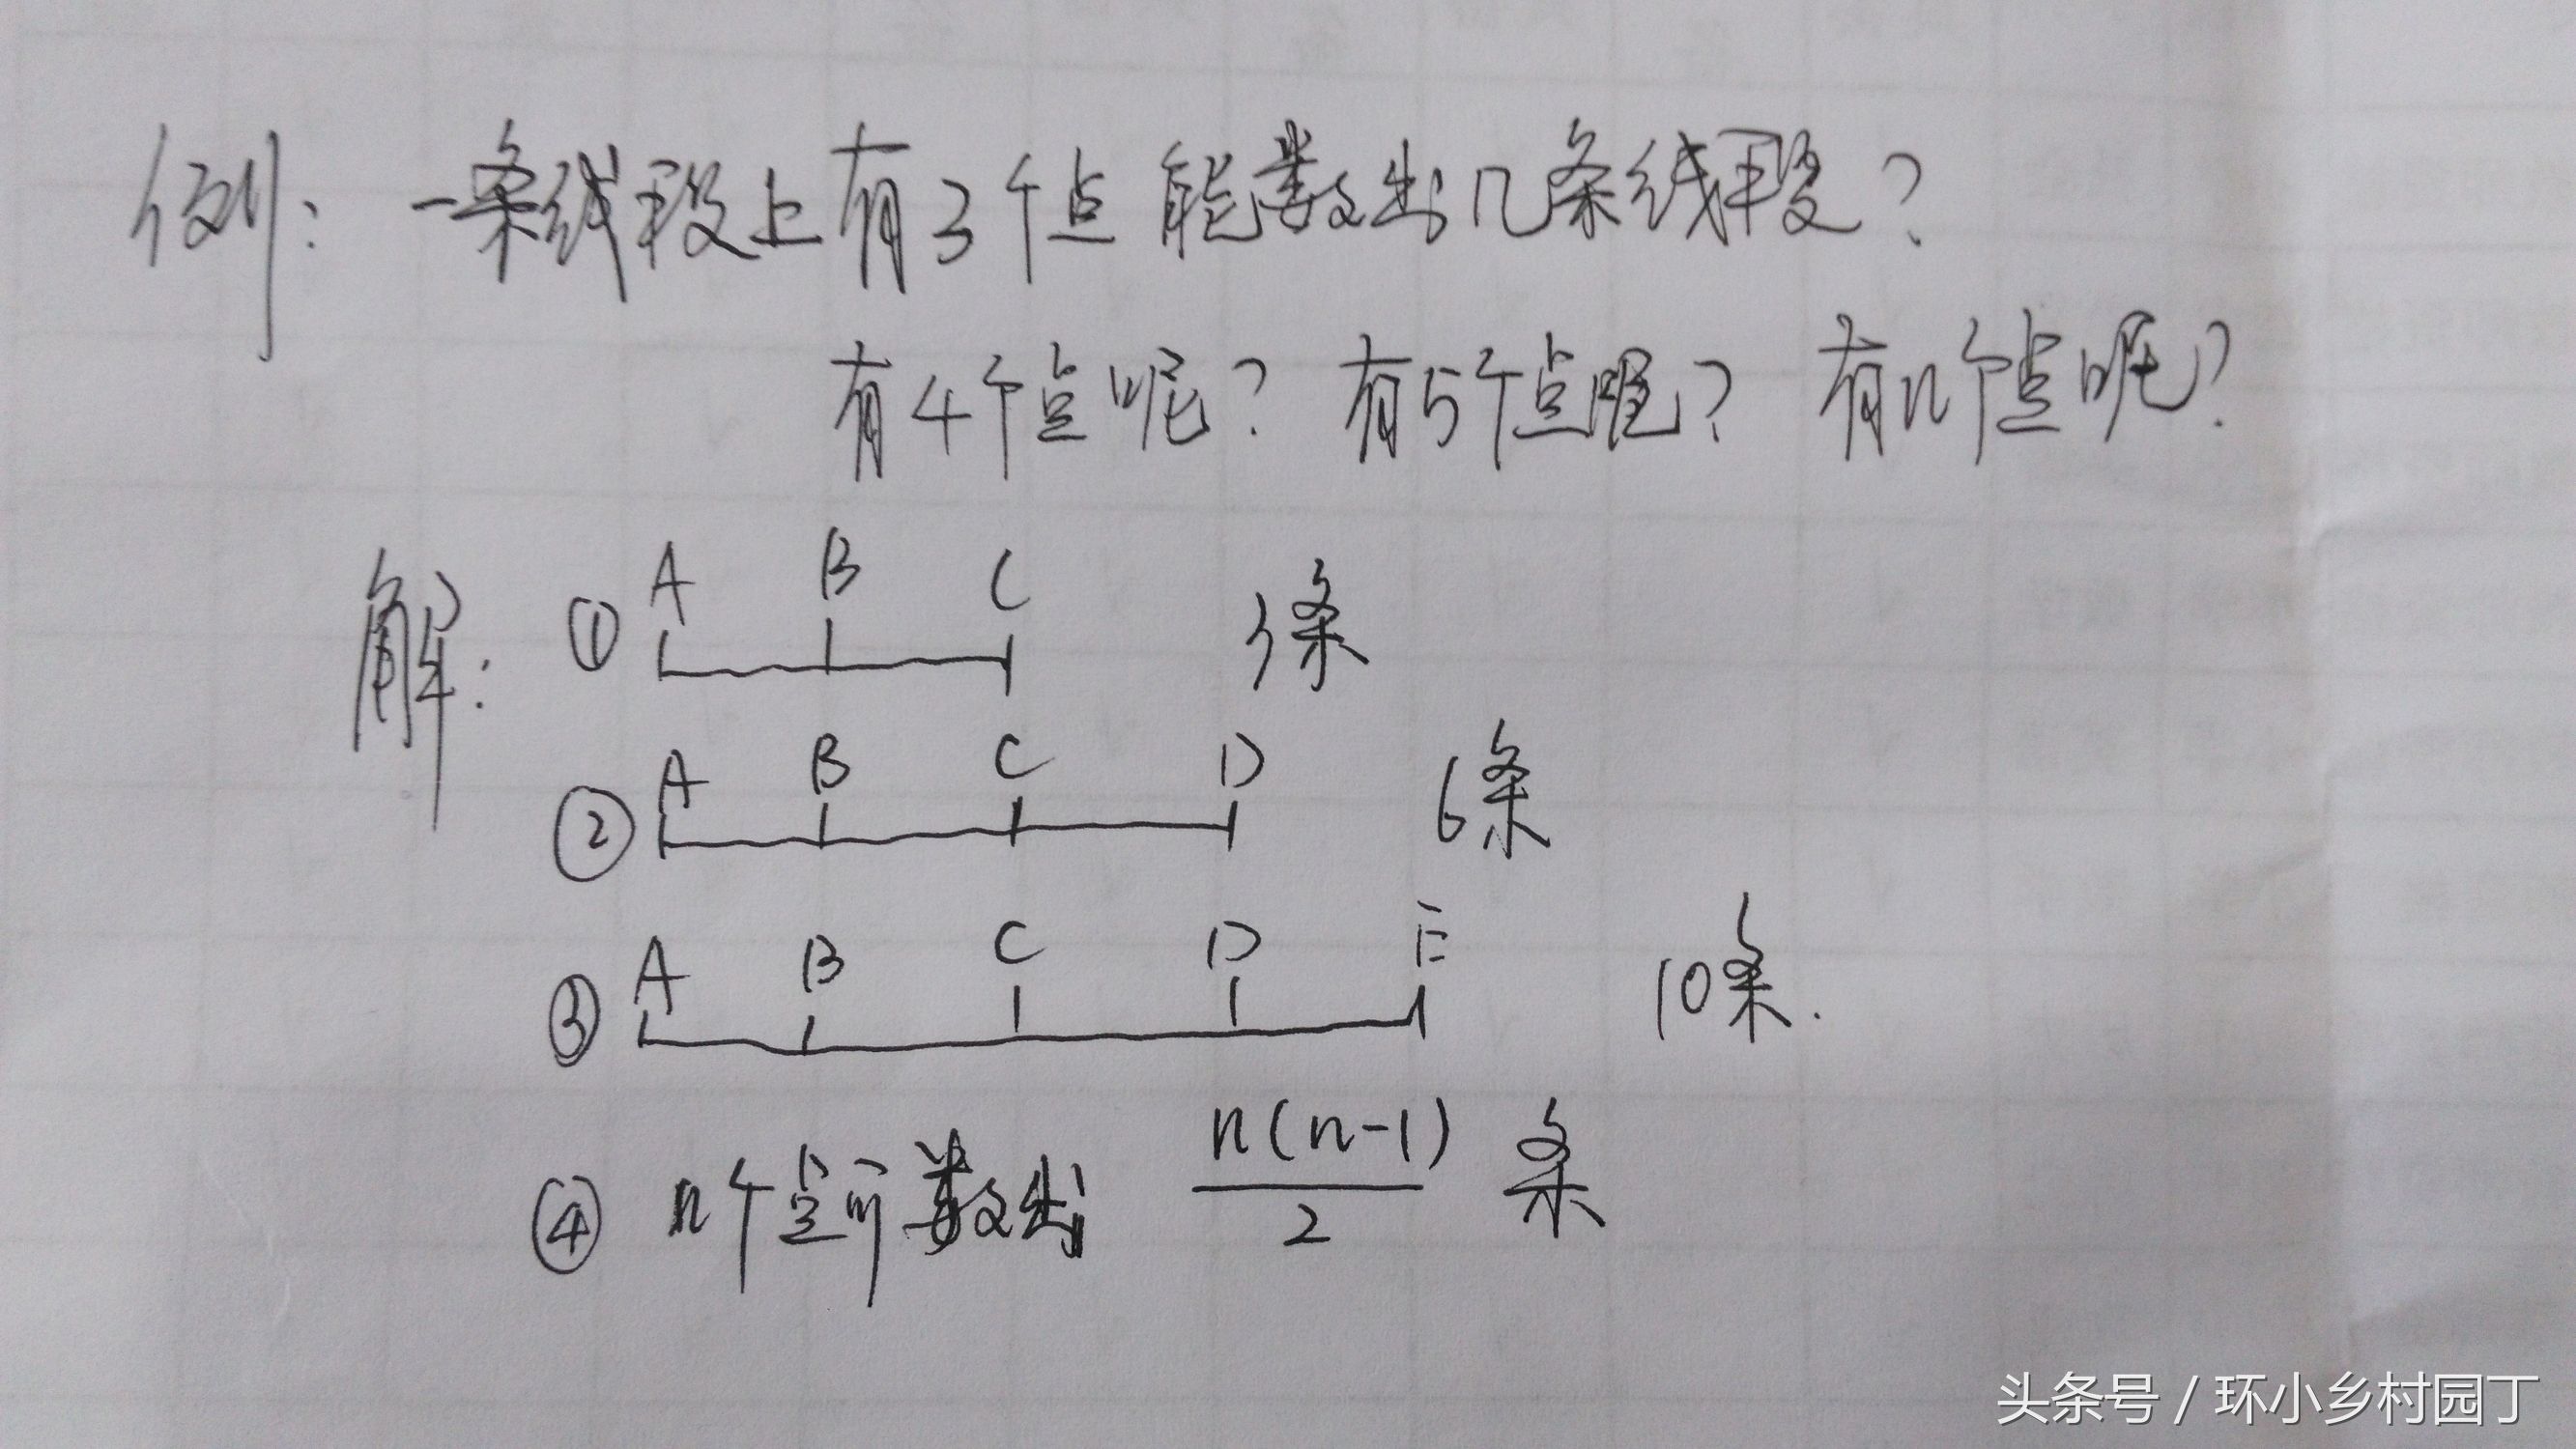 例：一条线段上有3个点能数出几条线段？
有4个点呢？有5个点呢？有n个点呢？
解：① A B C 3条
② A B C D 6条
③ A B C D E 10条.
④ n个点可数出 n(n-1)/2 条
头条号 / 环小乡村园丁